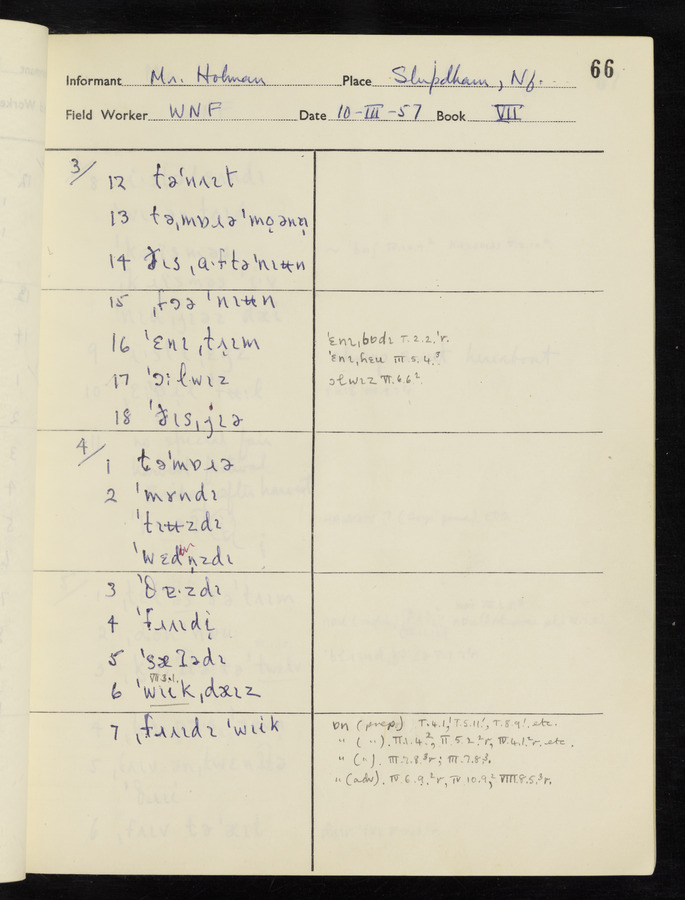 66
Informant Mr. Holman Place Shipdham, Nf.
Field Worker WNF Date 10-III-57 Book VII
3/ 12 tə'nʌɪt
13 tə,mɒɹə'mɔ̣ənɪṇ
14 ðɪs,ɑ·ftə'nɪʉn
15 ,fɔə'nɪʉn
16 'ɛnɪ,tɪ̣ɪm 'ɛnɪ,bɒdɪ V.2.2.'r.
'ɛnɪ,hɛu III.5.4.³
17 'ɔ:lwɪz ɔlwɪz VI.6.6²
18 'ðɪs,jɪə
4/ 1 tə'mɒɹə
2 'mʌndɪ
'tɪʉzdɪ
'wɛdṇzdɪ
3 'θɐ·zdɪ
4 'fɹʌɪdị
5 'sæʔədɪ
VII.3.1.
6 'wɪik,dæɪz
7 ,fɹʌɪdɪ 'wɪik ɒn (prep) V.4.1,' V.5.11', V.8.9'. etc.
" ( " ).
" ( " ). III.7.8.³r; III.7.8³.
" (adv). IV.6.9.²r, IV.10.9,² VIII.8.5.³r.